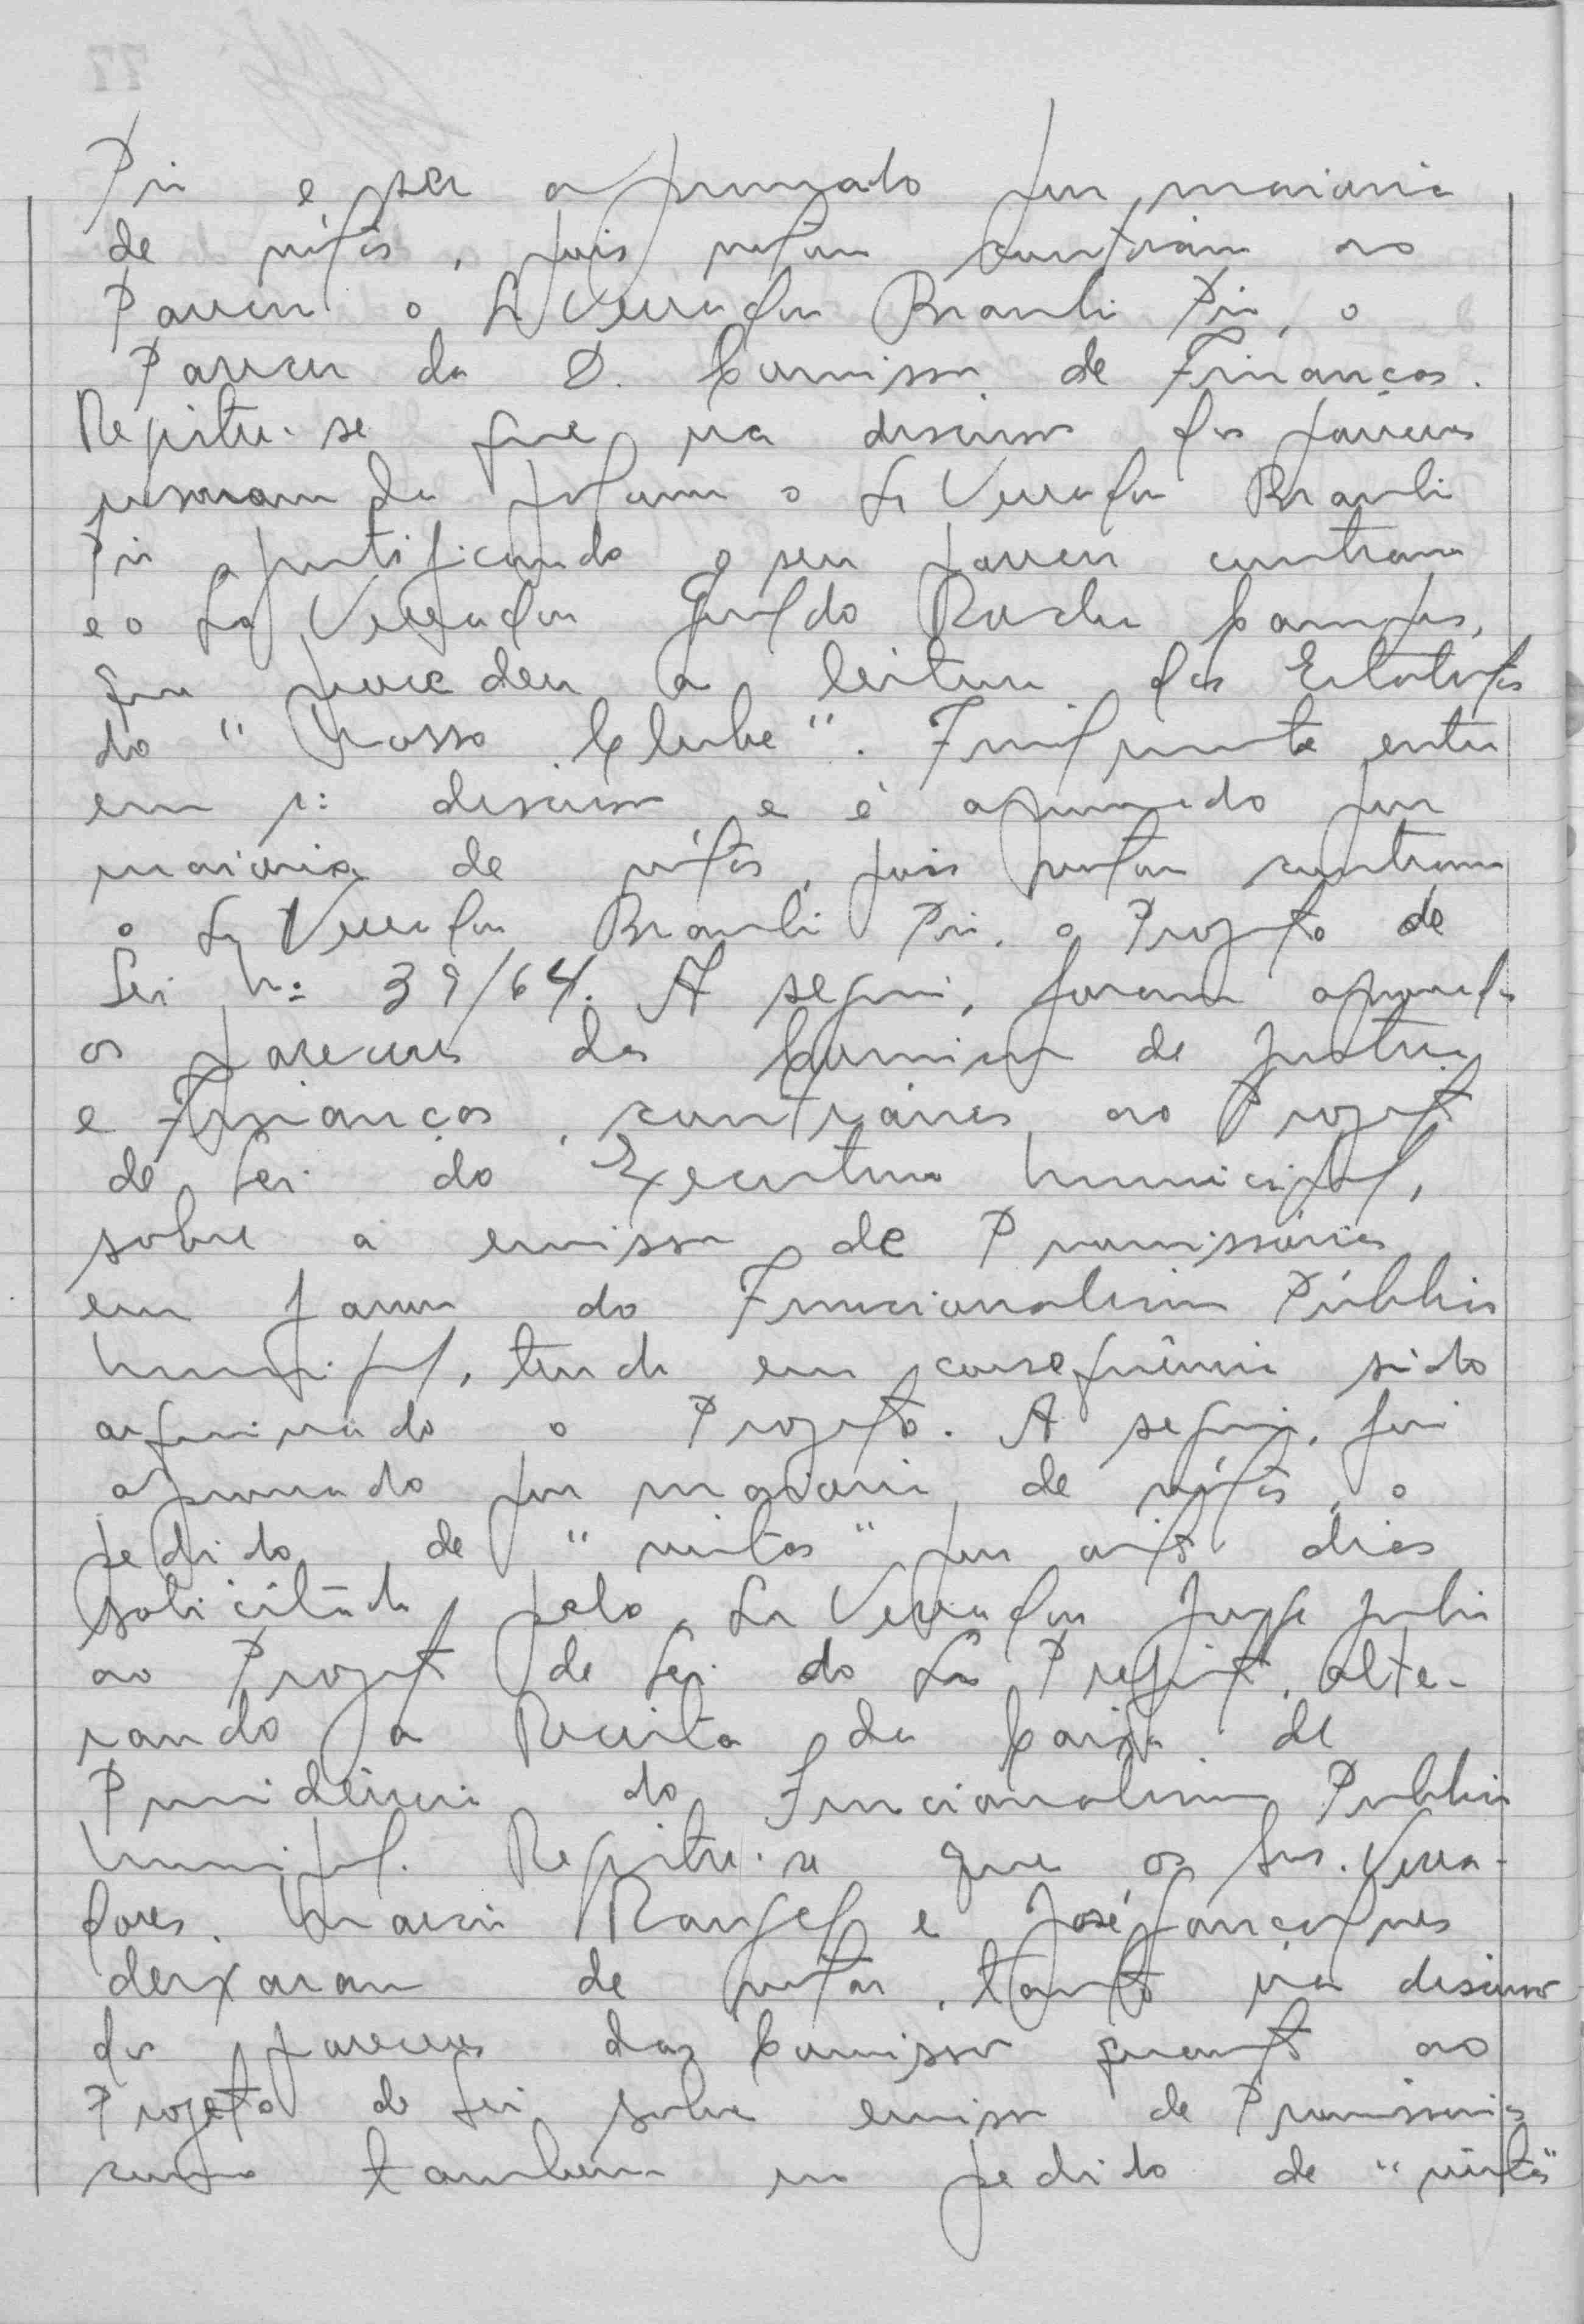 e ser aprovado por maioria
de vótos, pois votou contrário ao
Parecer o Sr Vereador Brandi Pin, o
Parecer da D. Comissão de Finanças.
Registre-se que na discussão dos pareceres
usaram da palavra o Sr Vereador
justificando o seu parecer contrario
e o Sr Vereador Geraldo Rocha Campos,
que procedeu a leitura dos Estatutos
do "Nosso Clube". Finalmente entra
em 1ª discussão e é aprovado por
maioria de vótos, pois votou contrario
o Sr Vereador o Projeto de
Lei nº 39/64. A seguir, foram aprovados
os pareceres da Comissão de Justiça
e Finanças, contrários ao Projeto
de Lei do Executivo Municipal,
sobre a emissão de Promissórias
em favor do Funcionalismo Público
Municipal, tendo em consequência sido
arquivado o Projeto. A seguir, foi
aprovado por maioria de vótos, o
pedido de "vistas" por oito dias
solicitado pelo Sr Vereador Jorge
ao Projeto de Lei do Sr Prefeito, alte-
rando a Receita da Caixa de
Previdência do Funcionalismo Publico
Municipal. Registre-se que os Srs. Verea-
dores. Rangel e José Gonçalves
deixaram de votar, tanto na discussão
dos pareceres das Comissão quanto ao
Projeto de Lei sobre emissão de Promissorias
como tambem no pedido de "vistas"